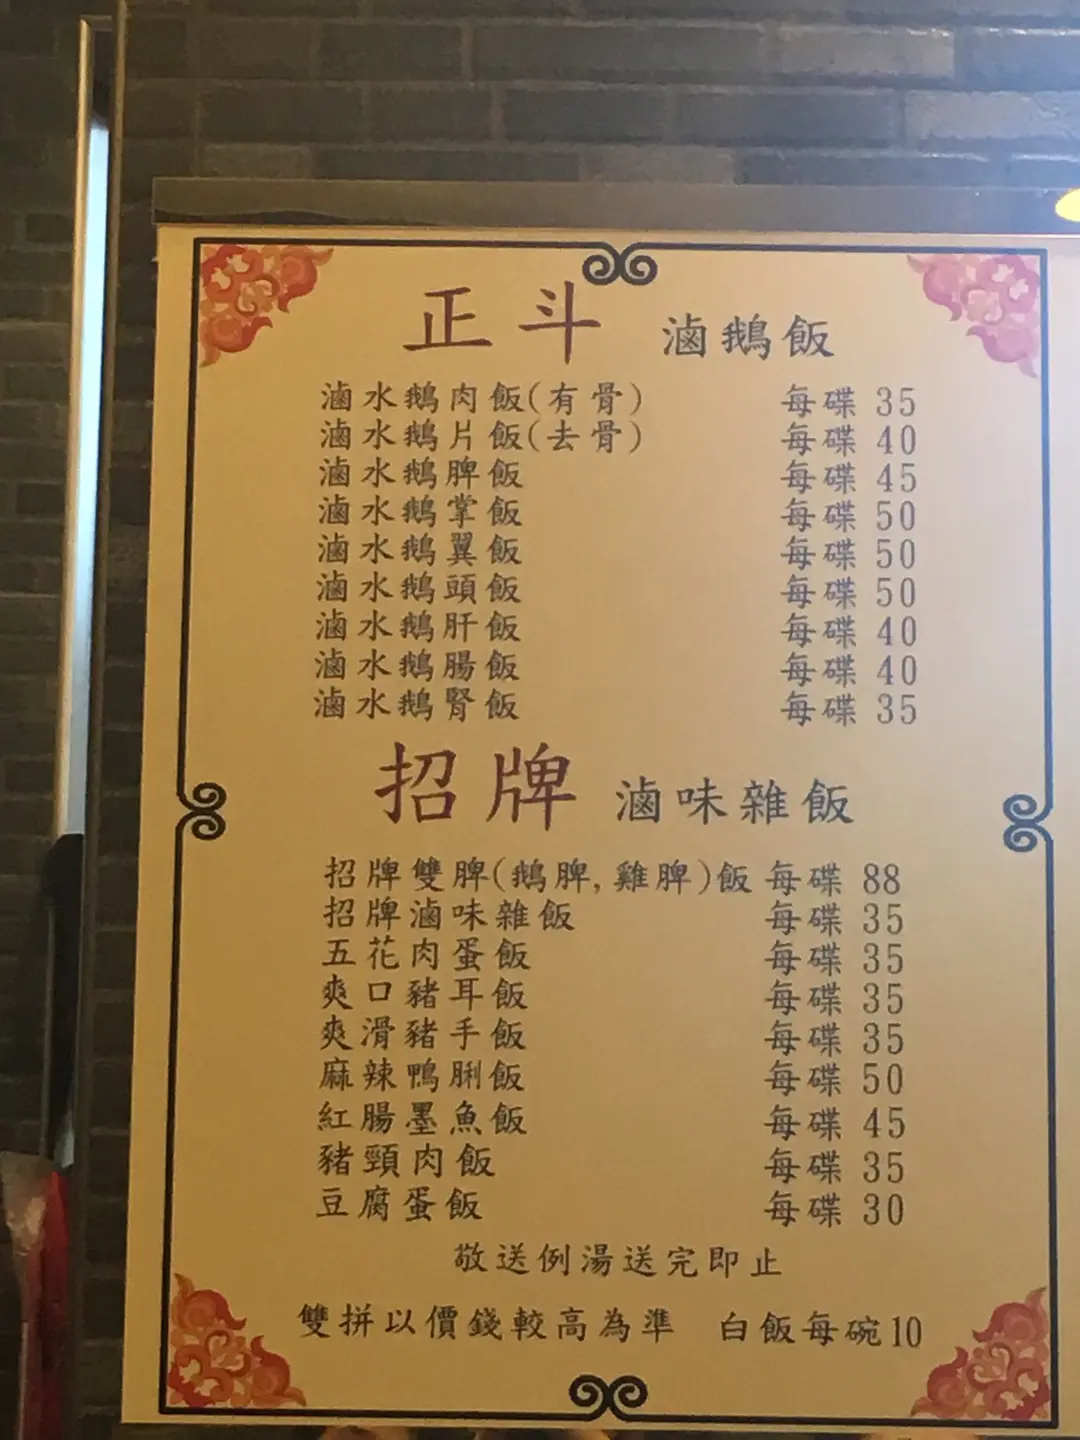 正斗 滷鵝飯
滷水鵝肉飯(有骨) 每碟 35
滷水鵝片飯(去骨) 每碟 40
滷水鵝脾飯 每碟 45
滷水鵝掌飯 每碟 50
滷水鵝翼飯 每碟 50
滷水鵝頭飯 每碟 50
滷水鵝肝飯 每碟 40
滷水鵝腸飯 每碟 40
滷水鵝腎飯 每碟 35
招牌 滷味雜飯
招牌雙脾(鵝脾,雞脾)飯 每碟 88
招牌滷味雜飯 每碟 35
五花肉蛋飯 每碟 35
爽口豬耳飯 每碟 35
爽滑豬手飯 每碟 35
麻辣鴨脷飯 每碟 50
紅腸墨魚飯 每碟 45
豬頸肉飯 每碟 35
豆腐蛋飯 每碟 30
敬送例湯送完即止
雙拼以價錢較高為準 白飯每碗10